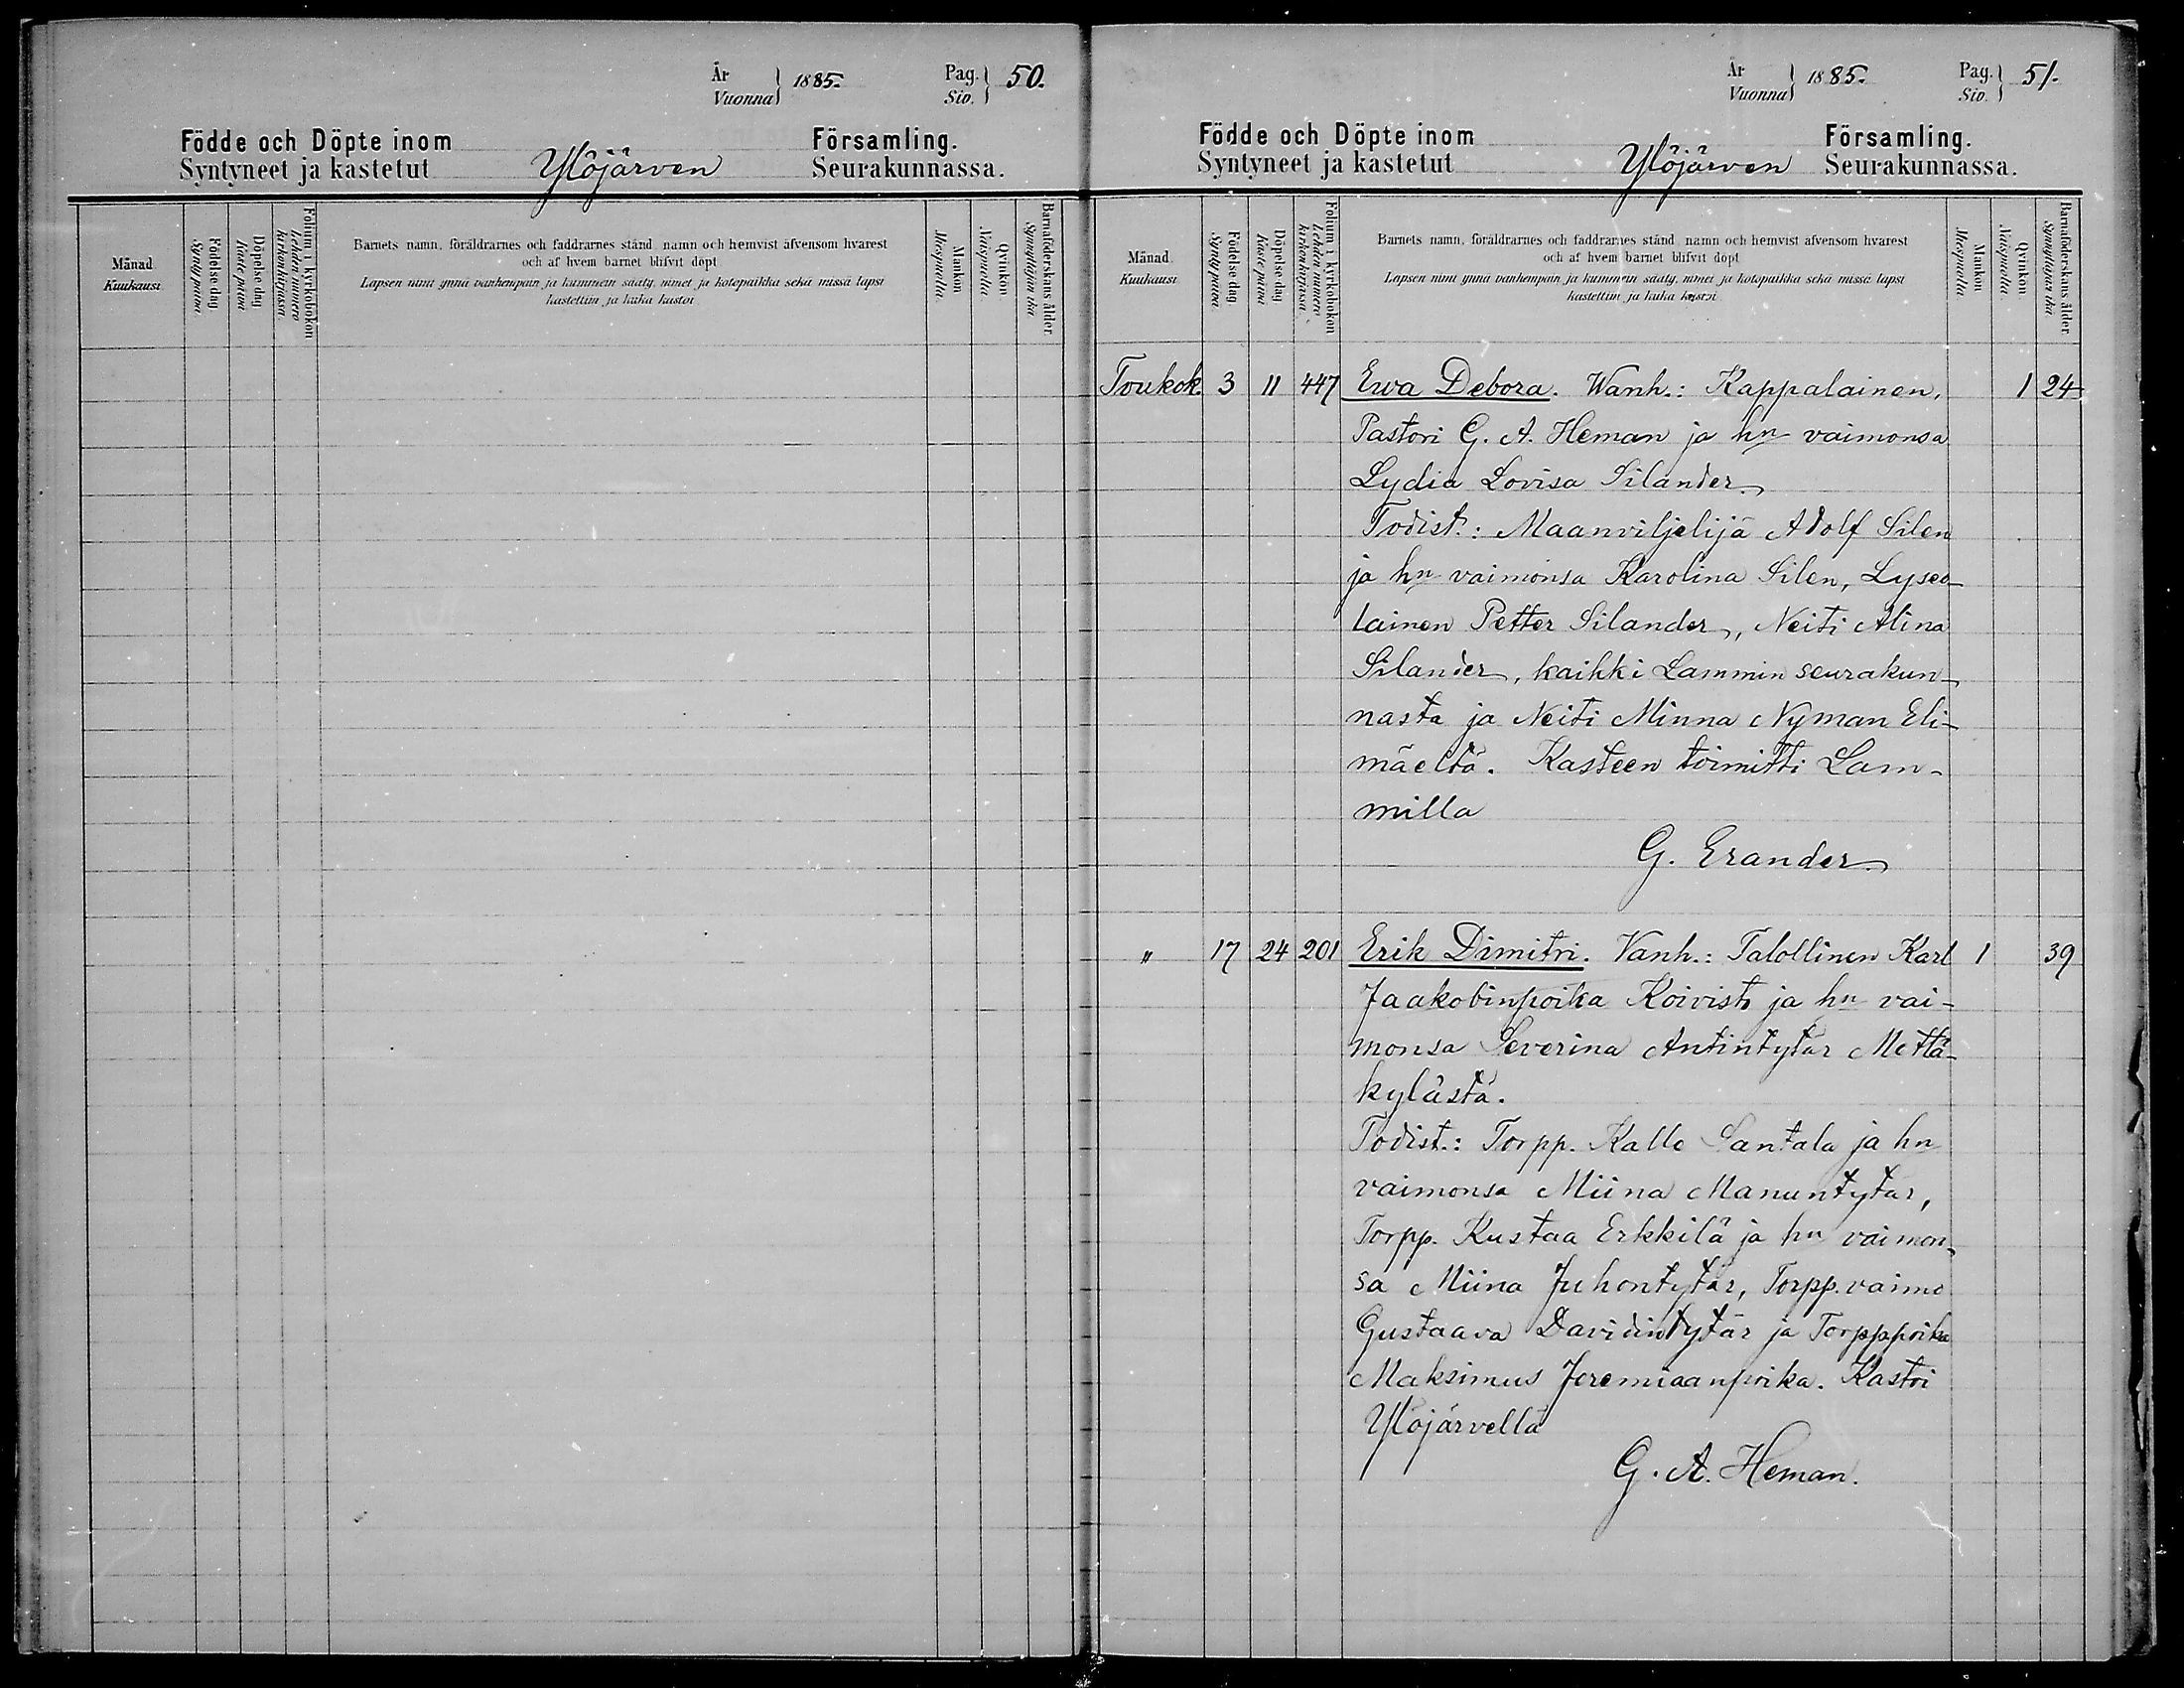 År
Vuonna } 1885. Pag.
Siv. } 50.
Födde och Döpte inom Församling.
Syntyneet ja kastetut Ylöjärven Seurakunnassa.
Månad.
Kuukausi.
Födelse dag
Synty päivä
Döpelse dag
Kaste päivä
Folium i kyrkoboken
Lehden numero
kirkonkirjassa
Barnets namn, föräldrarnes och faddrarnes stånd, namn och hemvist äfvensom hvarest
och af hvem barnet blifvit döpt
Lapsen nimi ynnä vanhempain ja kummein sääty, nimet ja kotopaikka sekä missä lapsi
kastettiin ja kuka kastoi.
Mankön
Miespuolia
Qvinkön
Naispuolia
Barnaföderskans ålder
Synnyttäjän ikä
År
Vuonna } 1885. Pag.
Siv. } 51.
Födde och Döpte inom Församling.
Syntyneet ja kastetut Ylöjärven Seurakunnassa.
Månad.
Kuukausi.
Födelse dag
Synty päivä
Döpelse dag
Kaste päivä
Folium i kyrkoboken
Lehden numero
kirkonkirjassa
Barnets namn, föräldrarnes och faddrarnes stånd, namn och hemvist äfvensom hvarest
och af hvem barnet blifvit döpt
Lapsen nimi ynnä vanhempain ja kummein sääty, nimet ja kotopaikka sekä missä lapsi
kastettiin ja kuka kastoi.
Mankön
Miespuolia
Qvinkön
Naispuolia
Barnaföderskans ålder
Synnyttäjän ikä
Toukok. 3 11 447 Ewa Debora. Wanh.: Kappalainen, 1 24
Pastori G. A. Heman ja hn vaimonsa
Lydia Lovisa Silander.
Todist.: Maanviljelijä Adolf Silen
ja hn vaimonsa Karolina Silen, Lyseo-
lainen Petter Silander, Neiti Alina
Silander, kaikki Lammin seurakun-
nasta ja Neiti Minna Nyman Eli-
mäeltä. Kasteen toimitti Lam-
milla
G. Erander.
" 17 24 201 Erik Dimitri. Vanh.: Talollinen Karl 1 39
Jaakobinpoika Koivisto ja hn vai-
monsa Severina Antintytär Mettä-
kylästä.
Todist.: Torpp. Kalle Santala ja hn
vaimonsa Miina Manuntytär,
Torpp. Kustaa Erkkilä ja hn vaimon-
sa Miina Juhontytär, Torpp. vaimo
Gustaava Davidintytär ja Torpp.poika
Maksimus Jeremiaanpoika. Kastoi
Ylöjärvellä
G. A. Heman.